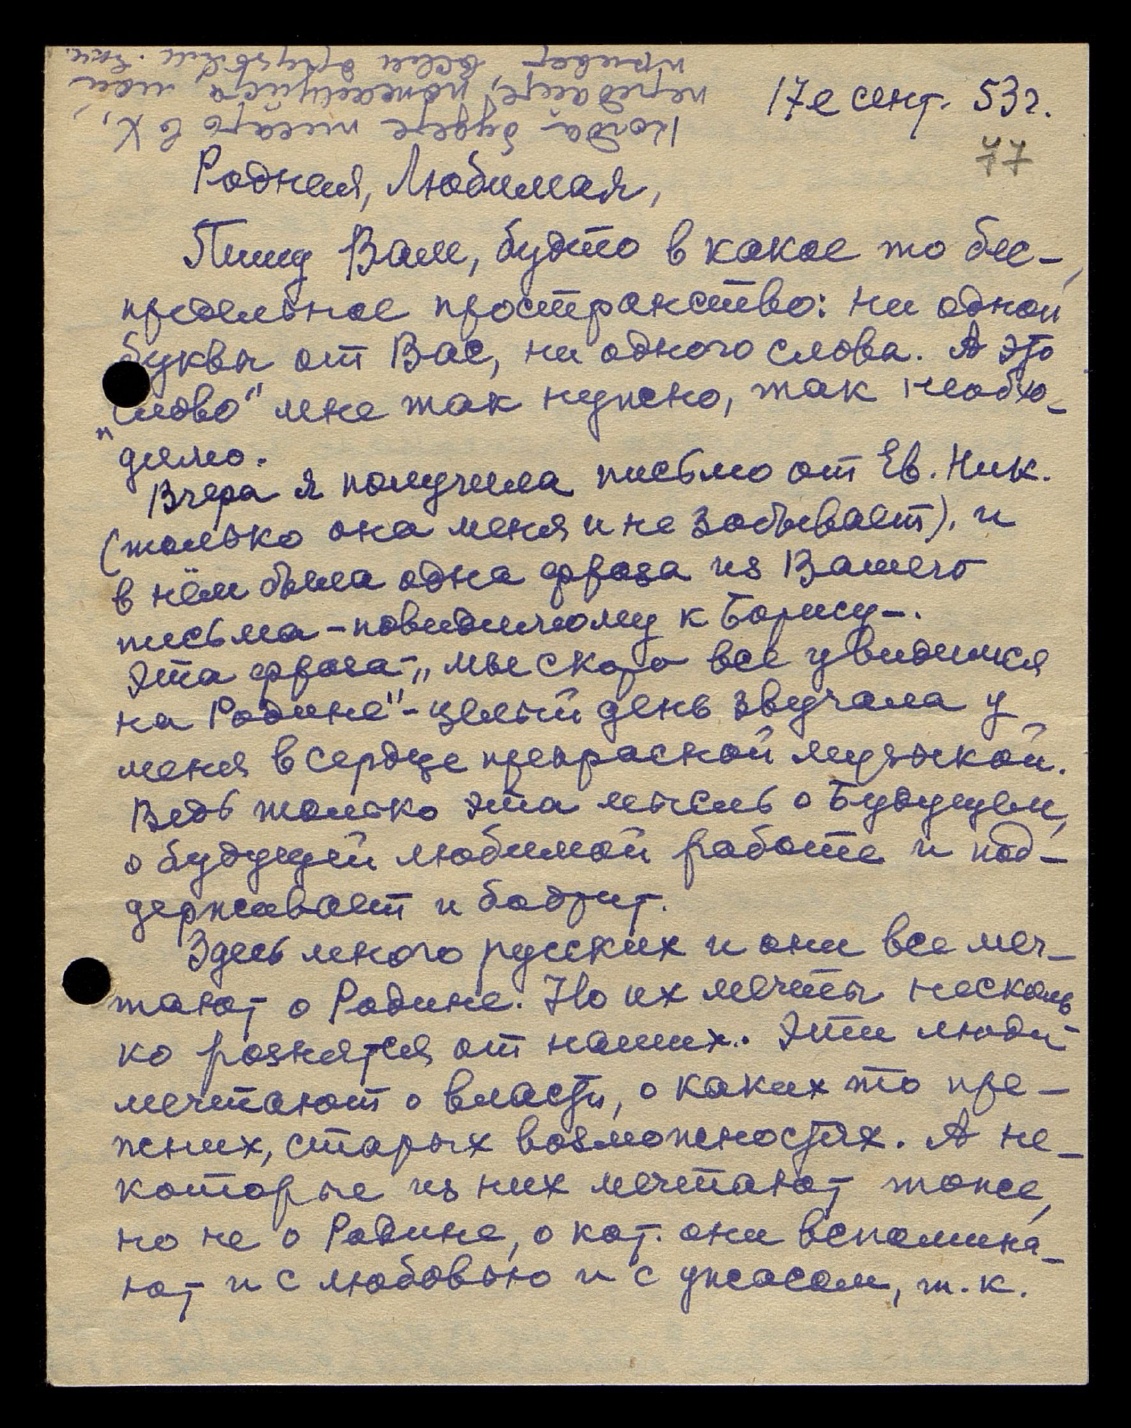 17е сент. 53 г.
77
Родная, Любимая,
Пишу Вам, будто в какое то бес-
предельное пространство: ни одной
буквы от Вас, ни одного слова. А это
„слово" мне так нужно, так необхо-
димо.
Вчера я получила письмо от Ев. Ник.
(только она меня и не забывает), и
в нём была одна фраза из Вашего
письма – повидимому к Борису –.
Эта фраза – „мы скоро все увидимся
на Родине" – целый день звучала у
меня в сердце прекрасной музыкой.
Ведь только эта мысль о Будущем,
о будущей любимой работе и под-
держивает и бодрит.
Здесь много русских и они все меч-
тают о Родине. Но их мечты несколь
ко розняться от наших. Эти люди
мечтают о власти, о каких то пре-
жних, старых возможностях. А не-
которые из них мечтают тоже,
но не о Родине, о кот. они вспомина-
ют и с любовью и с ужасом, т. к.
Когда будете писать в Х,
передайте, пожалуйста, мой
привет всем друзьям.